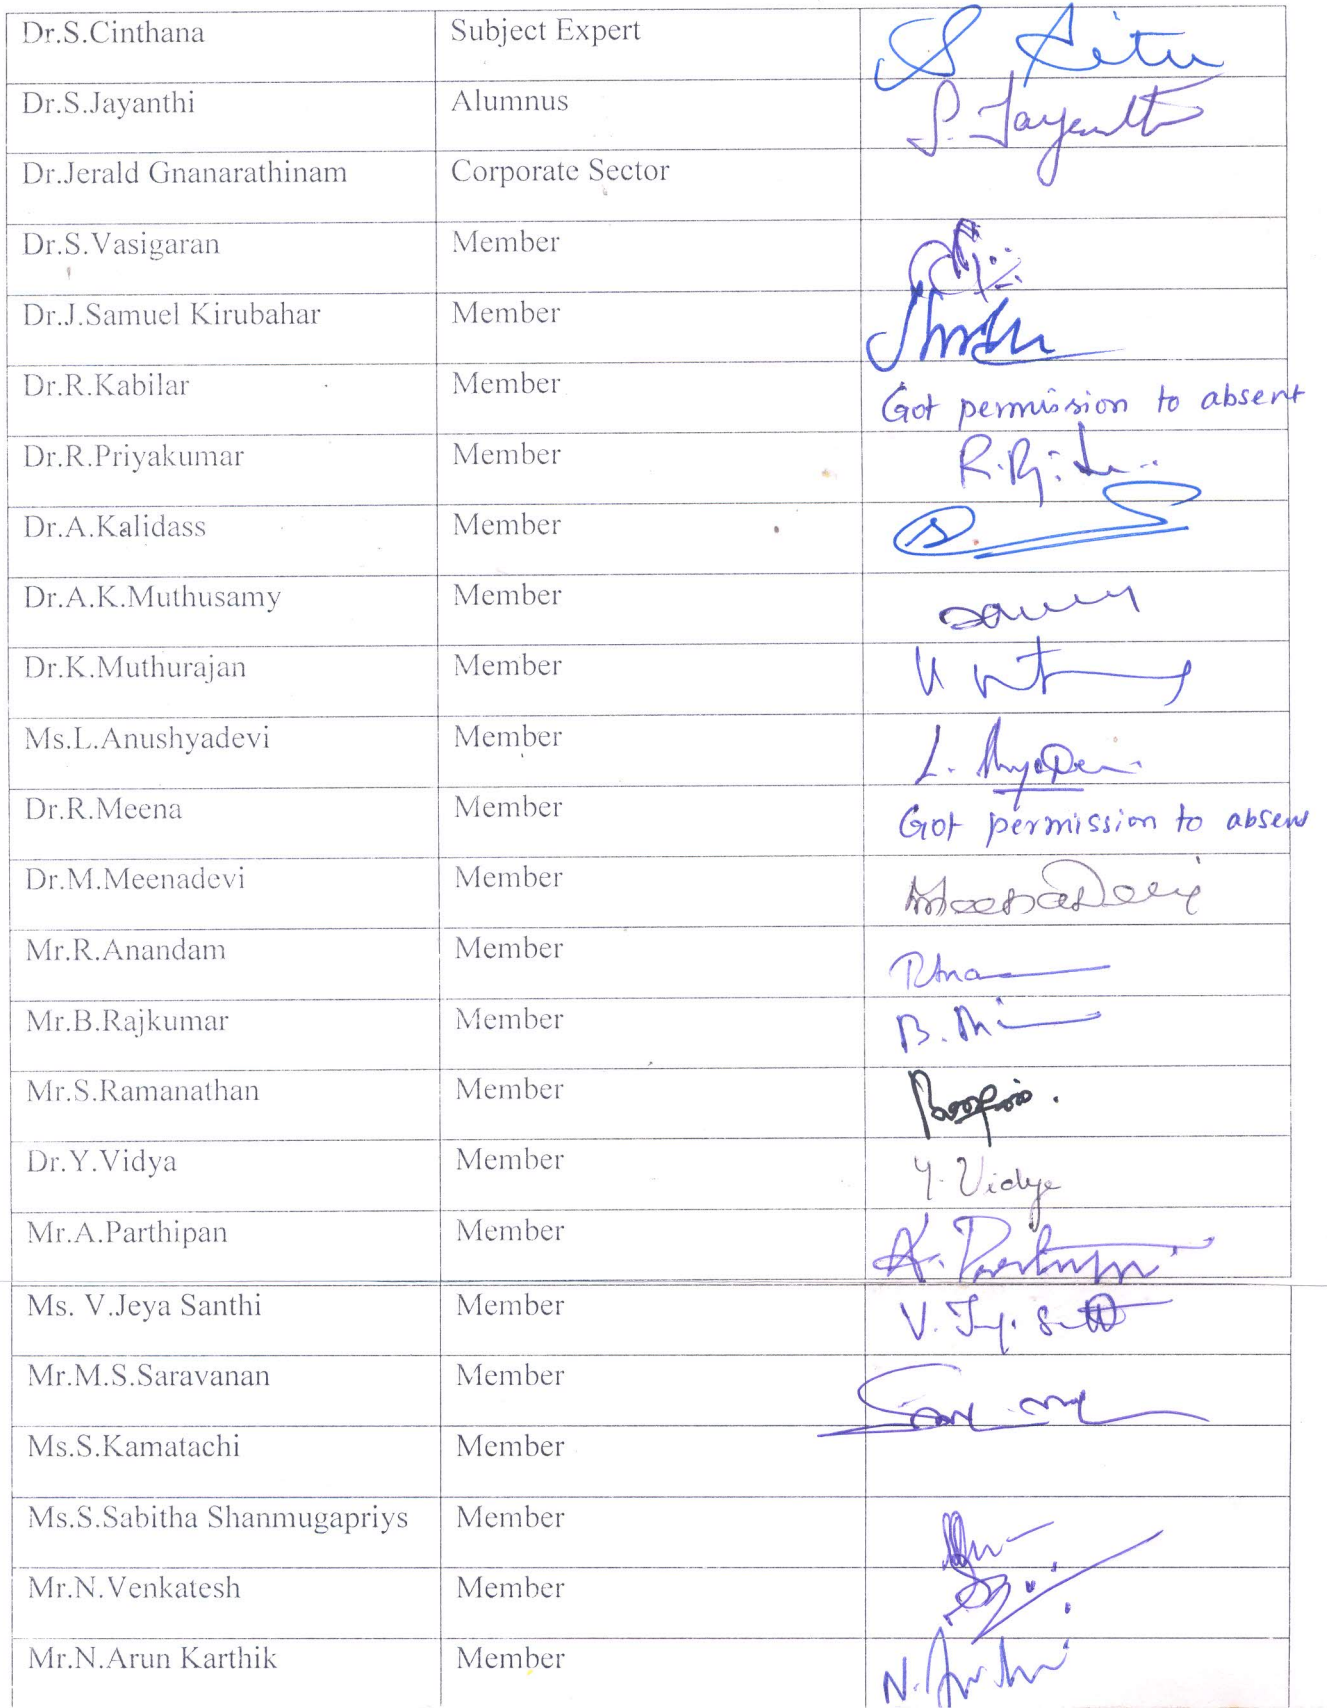 Dr.S.Cinthana Subject Expert
Dr.S.Jayanthi Alumnus S. Jayanthi
Dr.Jerald Gnanarathinam Corporate Sector
Dr.S.Vasigaran Member
Dr.J.Samuel Kirubahar Member
Dr.R.Kabilar Member Got permission to absent
Dr.R.Priyakumar Member
Dr.A.Kalidass Member
Dr.A.K.Muthusamy Member
Dr.K.Muthurajan Member
Ms.L.Anushyadevi Member
Dr.R.Meena Member Got permission to absent
Dr.M.Meenadevi Member MeenaDevi
Mr.R.Anandam Member
Mr.B.Rajkumar Member
Mr.S.Ramanathan Member
Dr.Y.Vidya Member Y. Vidya
Mr.A.Parthipan Member
Ms. V.Jeya Santhi Member
Mr.M.S.Saravanan Member
Ms.S.Kamatachi Member
Ms.S.Sabitha Shanmugapriys Member
Mr.N.Venkatesh Member
Mr.N.Arun Karthik Member